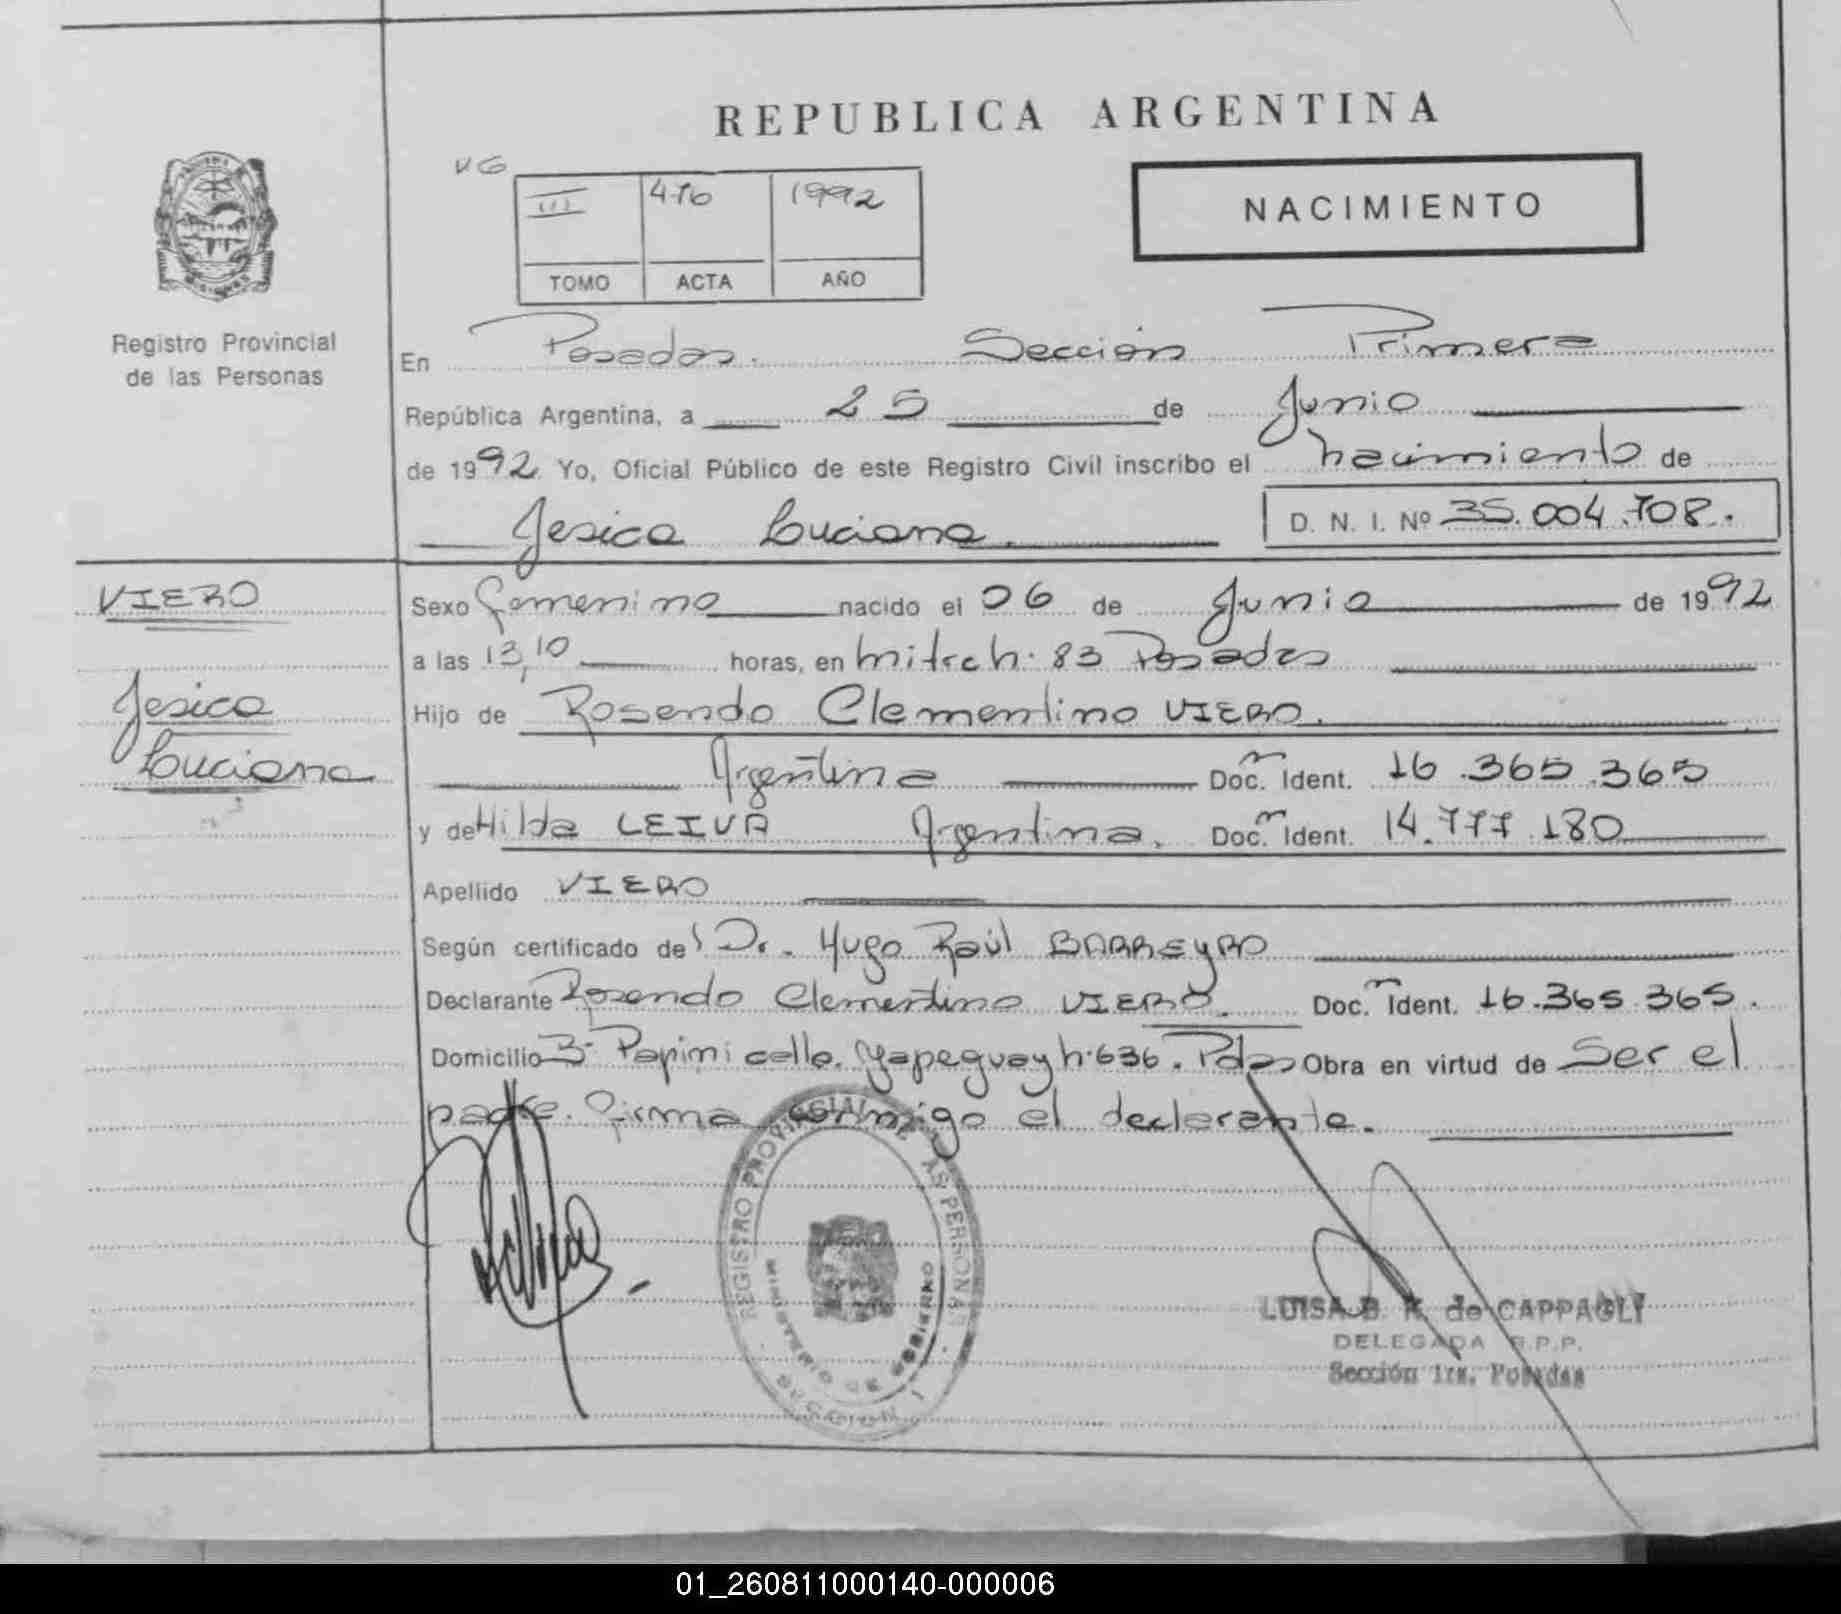 REPUBLICA ARGENTINA
VG
III 476 1992
TOMO ACTA AÑO
NACIMIENTO
Registro Provincial
de las Personas
En Posadas. Sección Primera
República Argentina, a 25 de Junio
de 1992 Yo, Oficial Público de este Registro Civil inscribo el nacimiento de
Jesica Luciana. D. N. I. Nº 35.004.708.
VIERO
Jesica
Luciana
Sexo Femenino nacido el 06 de Junio de 1992
a las 13,10 horas, en Mitre n. 83 Posadas
Hijo de Rosendo Clementino VIERO.
Argentina Doc. Ident. 16.365.365
y de Hilda LEIVA Argentina. Doc. Ident. 14.777.180
Apellido VIERO
Según certificado del Dr. Hugo Raúl BARREYRO
Declarante Rosendo Clementino VIERO. Doc. Ident. 16.365.365.
Domicilio Bº Papini calle. Yapeguay n. 636. Pdas Obra en virtud de Ser el
padre. Firma conmigo el declarante.
REGISTRO PROVINCIAL DE LAS PERSONAS
MINISTERIO DE GOBIERNO
LUISA B. R. de CAPPAGLI
DELEGADA R.P.P.
Sección 1ra. Posadas
01_260811000140-000006